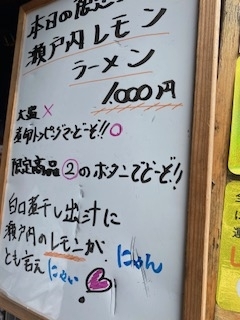 本日の限定
瀬戸内レモン
ラーメン
1.000円
大盛 ×
トッピングどーぞ!! ○
限定商品②のボタンでどーぞ!!
白口煮干し出汁に
瀬戸内のレモンが
とも言え にゃい にゃん